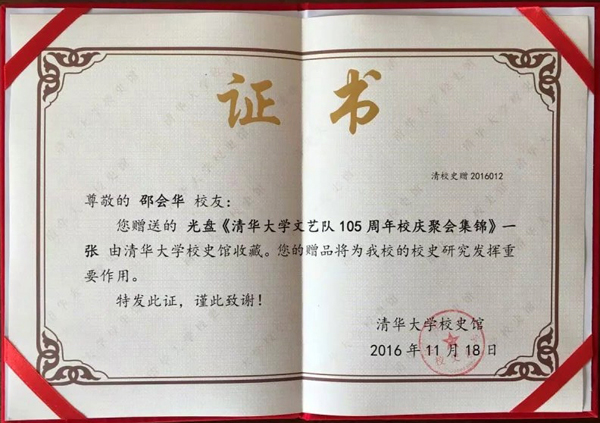 证书
清校史赠2016012
尊敬的 邵会华 校友：
您赠送的 光盘《清华大学文艺队105周年校庆聚会集锦》一
张 由清华大学校史馆收藏。您的赠品将为我校的校史研究发挥重
要作用。
特发此证，谨此致谢！
清华大学校史馆
2016年11月18日